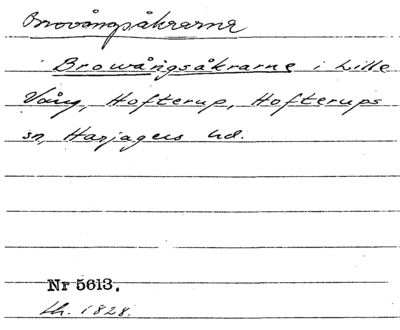 Brovångsåkrarne
Browångsåkrarne i Lille
Vång, Hofterup, Hofterups
sn, Harjagers hd.
Nr 5613.
th. 1828.